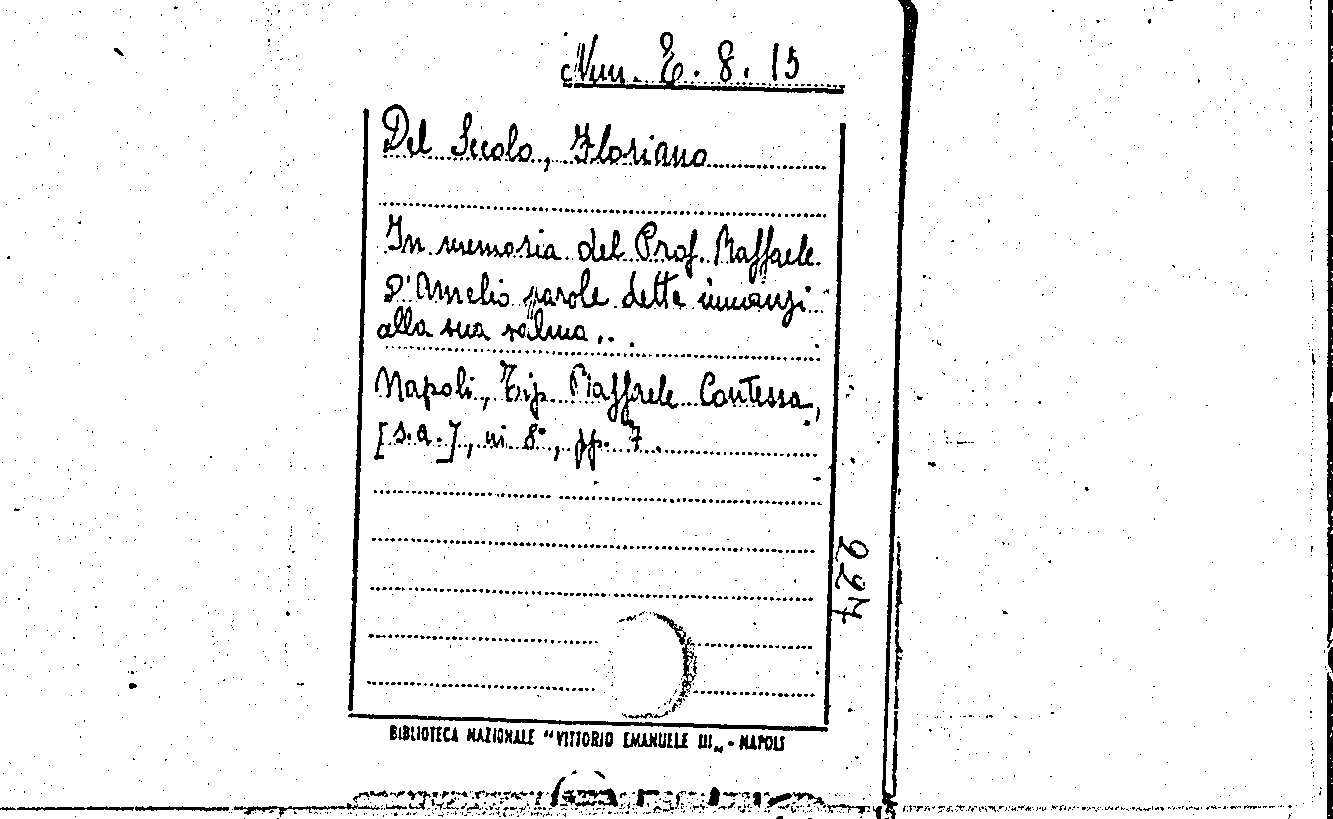 Nun. E. 8. 15
Del Secolo, Floriano
In memoria del Prof. Raffaele
D'Amelio parole dette innanzi
alla sua salma...
Napoli, Tip. Raffaele Contessa,
[s.a.], in 8°, pp. 7.
227
BIBLIOTECA NAZIONALE "VITTORIO EMANUELE III„ - NAPOLI